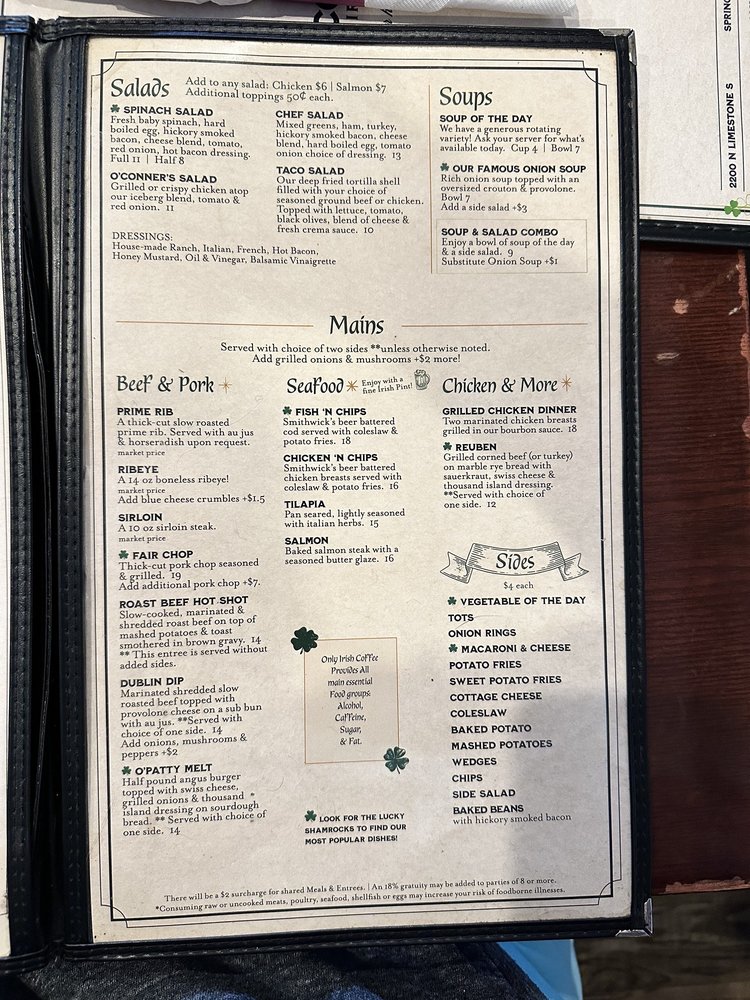 Salads
Add to any salad: Chicken $6 | Salmon $7
Additional toppings 50¢ each.
SPINACH SALAD
Fresh baby spinach, hard
boiled egg, hickory smoked
bacon, cheese blend, tomato,
red onion, hot bacon dressing.
Full 11 | Half 8
O'CONNER'S SALAD
Grilled or crispy chicken atop
our iceberg blend, tomato &
red onion. 11
CHEF SALAD
Mixed greens, ham, turkey,
hickory smoked bacon, cheese
blend, hard boiled egg, tomato
onion choice of dressing. 13
TACO SALAD
Our deep fried tortilla shell
filled with your choice of
seasoned ground beef or chicken.
Topped with lettuce, tomato,
black olives, blend of cheese &
fresh crema sauce. 10
DRESSINGS:
House-made Ranch, Italian, French, Hot Bacon,
Honey Mustard, Oil & Vinegar, Balsamic Vinaigrette
Soups
SOUP OF THE DAY
We have a generous rotating
variety! Ask your server for what's
available today. Cup 4 | Bowl 7
OUR FAMOUS ONION SOUP
Rich onion soup topped with an
oversized crouton & provolone.
Bowl 7
Add a side salad +$3
SOUP & SALAD COMBO
Enjoy a bowl of soup of the day
& a side salad. 9
Substitute Onion Soup +$1
Mains
Served with choice of two sides **unless otherwise noted.
Add grilled onions & mushrooms +$2 more!
Beef & Pork
PRIME RIB
A thick-cut slow roasted
prime rib. Served with au jus
& horseradish upon request.
market price
RIBEYE
A 14 oz boneless ribeye!
market price
Add blue cheese crumbles +$1.5
SIRLOIN
A 10 oz sirloin steak.
market price
FAIR CHOP
Thick-cut pork chop seasoned
& grilled. 19
Add additional pork chop +$7.
ROAST BEEF HOT SHOT
Slow-cooked, marinated &
shredded roast beef on top of
mashed potatoes & toast
smothered in brown gravy. 14
** This entree is served without
added sides.
DUBLIN DIP
Marinated shredded slow
roasted beef topped with
provolone cheese on a sub bun
with au jus. **Served with
choice of one side. 14
Add onions, mushrooms &
peppers +$2
O'PATTY MELT
Half pound angus burger
topped with swiss cheese,
grilled onions & thousand
island dressing on sourdough
bread. ** Served with choice of
one side. 14
Seafood
Enjoy with a
fine Irish Pint!
FISH 'N CHIPS
Smithwick's beer battered
cod served with coleslaw &
potato fries. 18
CHICKEN 'N CHIPS
Smithwick's beer battered
chicken breasts served with
coleslaw & potato fries. 16
TILAPIA
Pan seared, lightly seasoned
with italian herbs. 15
SALMON
Baked salmon steak with a
seasoned butter glaze. 16
Only Irish Coffee
Provides All
main essential
Food groups:
Alcohol,
Caffeine,
Sugar,
& Fat.
LOOK FOR THE LUCKY
SHAMROCKS TO FIND OUR
MOST POPULAR DISHES!
Chicken & More
GRILLED CHICKEN DINNER
Two marinated chicken breasts
grilled in our bourbon sauce. 18
REUBEN
Grilled corned beef (or turkey)
on marble rye bread with
sauerkraut, swiss cheese &
thousand island dressing.
**Served with choice of
one side. 12
Sides
$4 each
VEGETABLE OF THE DAY
TOTS
ONION RINGS
MACARONI & CHEESE
POTATO FRIES
SWEET POTATO FRIES
COTTAGE CHEESE
COLESLAW
BAKED POTATO
MASHED POTATOES
WEDGES
CHIPS
SIDE SALAD
BAKED BEANS
with hickory smoked bacon
There will be a $2 surcharge for shared Meals & Entrees. | An 18% gratuity may be added to parties of 8 or more.
*Consuming raw or uncooked meats, poultry, seafood, shellfish or eggs may increase your risk of foodborne illnesses.
2200 N LIMESTONE S
SPRING